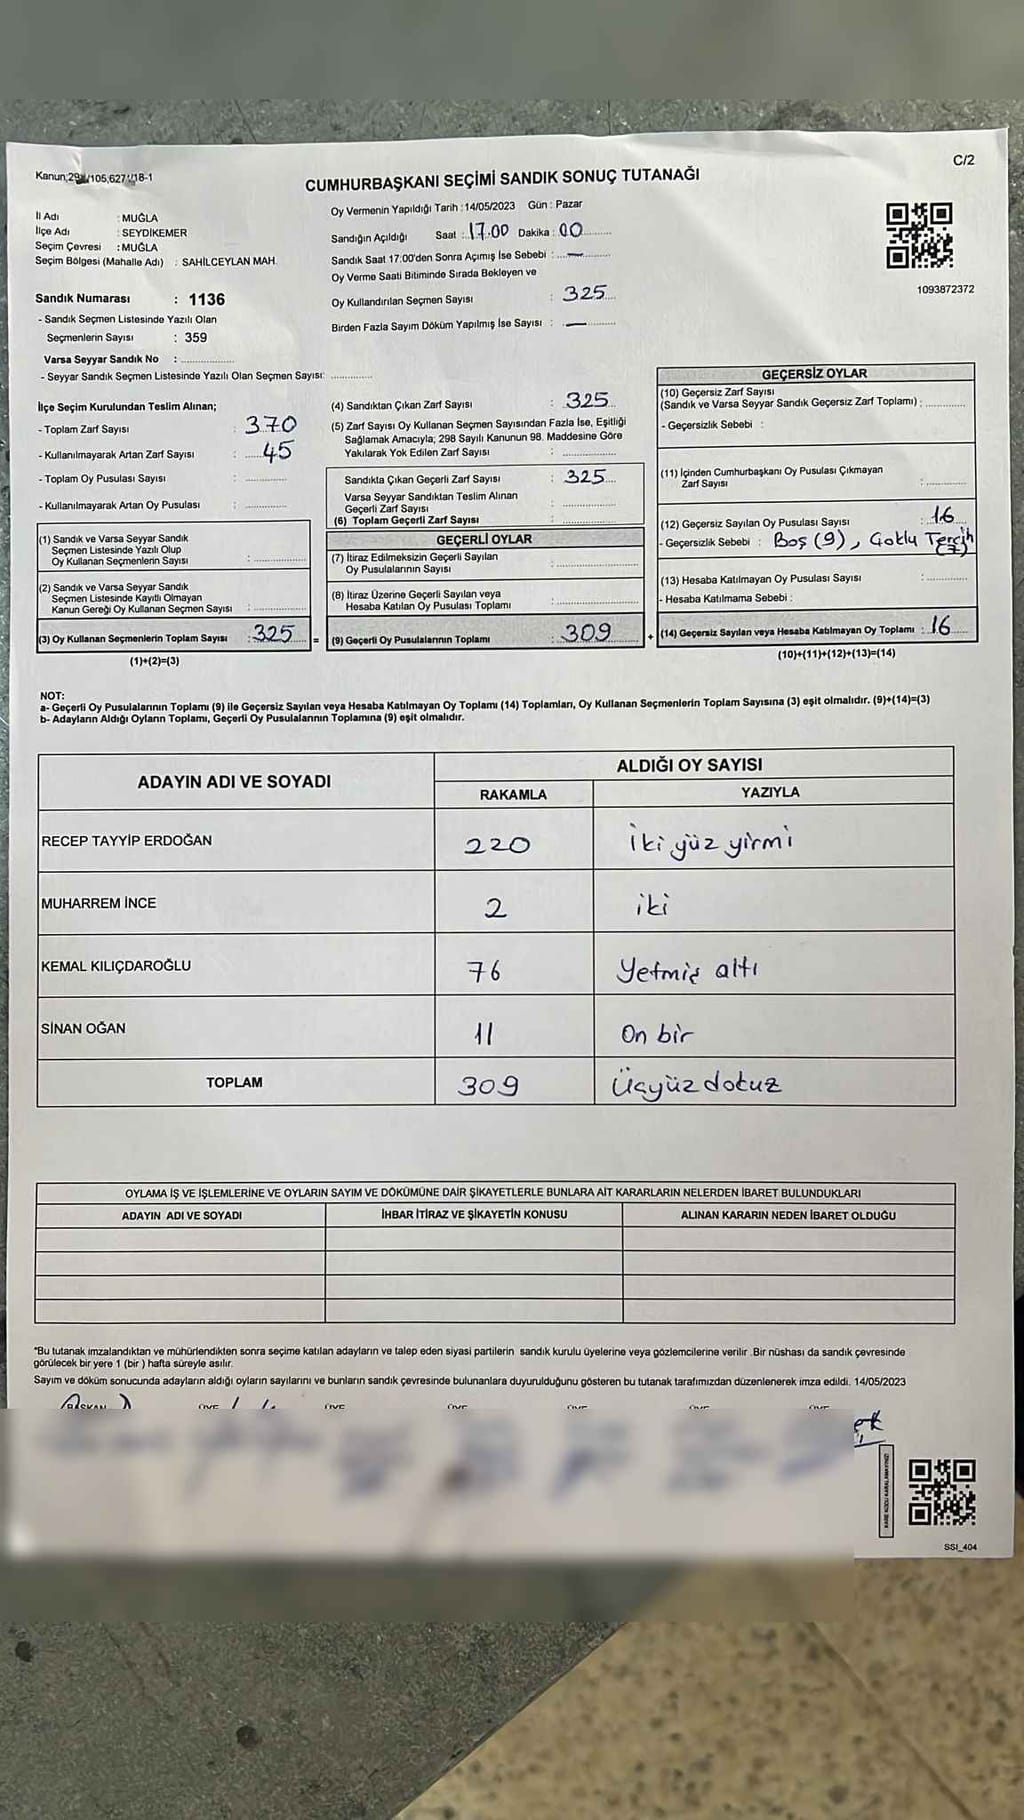 C/2
Kanun:298/105,627/18-1
CUMHURBAŞKANI SEÇİMİ SANDIK SONUÇ TUTANAĞI
İl Adı : MUĞLA
İlçe Adı : SEYDİKEMER
Seçim Çevresi : MUĞLA
Seçim Bölgesi (Mahalle Adı) : SAHİLCEYLAN MAH.
Sandık Numarası : 1136
- Sandık Seçmen Listesinde Yazılı Olan
Seçmenlerin Sayısı : 359
Varsa Seyyar Sandık No :
- Seyyar Sandık Seçmen Listesinde Yazılı Olan Seçmen Sayısı:
Oy Vermenin Yapıldığı Tarih :14/05/2023 Gün : Pazar
Sandığın Açıldığı Saat : 17.00 Dakika : 00
Sandık Saat 17:00'den Sonra Açımış İse Sebebi : —
Oy Verme Saati Bitiminde Sırada Bekleyen ve
Oy Kullandırılan Seçmen Sayısı : 325
Birden Fazla Sayım Döküm Yapılmış İse Sayısı : —
1093872372
İlçe Seçim Kurulundan Teslim Alınan;
- Toplam Zarf Sayısı : 370
- Kullanılmayarak Artan Zarf Sayısı : 45
- Toplam Oy Pusulası Sayısı :
- Kullanılmayarak Artan Oy Pusulası :
(1) Sandık ve Varsa Seyyar Sandık
Seçmen Listesinde Yazılı Olup
Oy Kullanan Seçmenlerin Sayısı :
(2) Sandık ve Varsa Seyyar Sandık
Seçmen Listesinde Kayıtlı Olmayan
Kanun Gereği Oy Kullanan Seçmen Sayısı :
(3) Oy Kullanan Seçmenlerin Toplam Sayısı : 325 =
(1)+(2)=(3)
(4) Sandıktan Çıkan Zarf Sayısı : 325
(5) Zarf Sayısı Oy Kullanan Seçmen Sayısından Fazla İse, Eşitliği
Sağlamak Amacıyla; 298 Sayılı Kanunun 98. Maddesine Göre
Yakılarak Yok Edilen Zarf Sayısı :
Sandıkta Çıkan Geçerli Zarf Sayısı : 325
Varsa Seyyar Sandıktan Teslim Alınan
Geçerli Zarf Sayısı :
(6) Toplam Geçerli Zarf Sayısı :
GEÇERLİ OYLAR
(7) İtiraz Edilmeksizin Geçerli Sayılan
Oy Pusulalarının Sayısı :
(8) İtiraz Üzerine Geçerli Sayılan veya
Hesaba Katılan Oy Pusulası Toplamı :
(9) Geçerli Oy Pusulalarının Toplamı : 309 +
GEÇERSİZ OYLAR
(10) Geçersiz Zarf Sayısı
(Sandık ve Varsa Seyyar Sandık Geçersiz Zarf Toplamı) :
- Geçersizlik Sebebi :
(11) İçinden Cumhurbaşkanı Oy Pusulası Çıkmayan
Zarf Sayısı :
(12) Geçersiz Sayılan Oy Pusulası Sayısı : 16
- Geçersizlik Sebebi : Boş (9), Çoklu Tercih
(7)
(13) Hesaba Katılmayan Oy Pusulası Sayısı :
- Hesaba Katılmama Sebebi :
(14) Geçersiz Sayılan veya Hesaba Katılmayan Oy Toplamı : 16
(10)+(11)+(12)+(13)=(14)
NOT:
a- Geçerli Oy Pusulalarının Toplamı (9) ile Geçersiz Sayılan veya Hesaba Katılmayan Oy Toplamı (14) Toplamları, Oy Kullanan Seçmenlerin Toplam Sayısına (3) eşit olmalıdır. (9)+(14)=(3)
b- Adayların Aldığı Oyların Toplamı, Geçerli Oy Pusulalarının Toplamına (9) eşit olmalıdır.
ADAYIN ADI VE SOYADI
ALDIĞI OY SAYISI
RAKAMLA YAZIYLA
RECEP TAYYİP ERDOĞAN 220 İki yüz yirmi
MUHARREM İNCE 2 iki
KEMAL KILIÇDAROĞLU 76 Yetmiş altı
SİNAN OĞAN 11 On bir
TOPLAM 309 Üçyüz dokuz
OYLAMA İŞ VE İŞLEMLERİNE VE OYLARIN SAYIM VE DÖKÜMÜNE DAİR ŞİKAYETLERLE BUNLARA AİT KARARLARIN NELERDEN İBARET BULUNDUKLARI
ADAYIN ADI VE SOYADI İHBAR İTİRAZ VE ŞİKAYETİN KONUSU ALINAN KARARIN NEDEN İBARET OLDUĞU
*Bu tutanak imzalandıktan ve mühürlendikten sonra seçime katılan adayların ve talep eden siyasi partilerin sandık kurulu üyelerine veya gözlemcilerine verilir .Bir nüshası da sandık çevresinde
görülecek bir yere 1 (bir ) hafta süreyle asılır.
Sayım ve döküm sonucunda adayların aldığı oyların sayılarını ve bunların sandık çevresinde bulunanlara duyurulduğunu gösteren bu tutanak tarafımızdan düzenlenerek imza edildi. 14/05/2023
BAŞKAN ÜYE ÜYE ÜYE ÜYE ÜYE ÜYE
KARE KODU KARALAMAYINIZ!
SSI_404